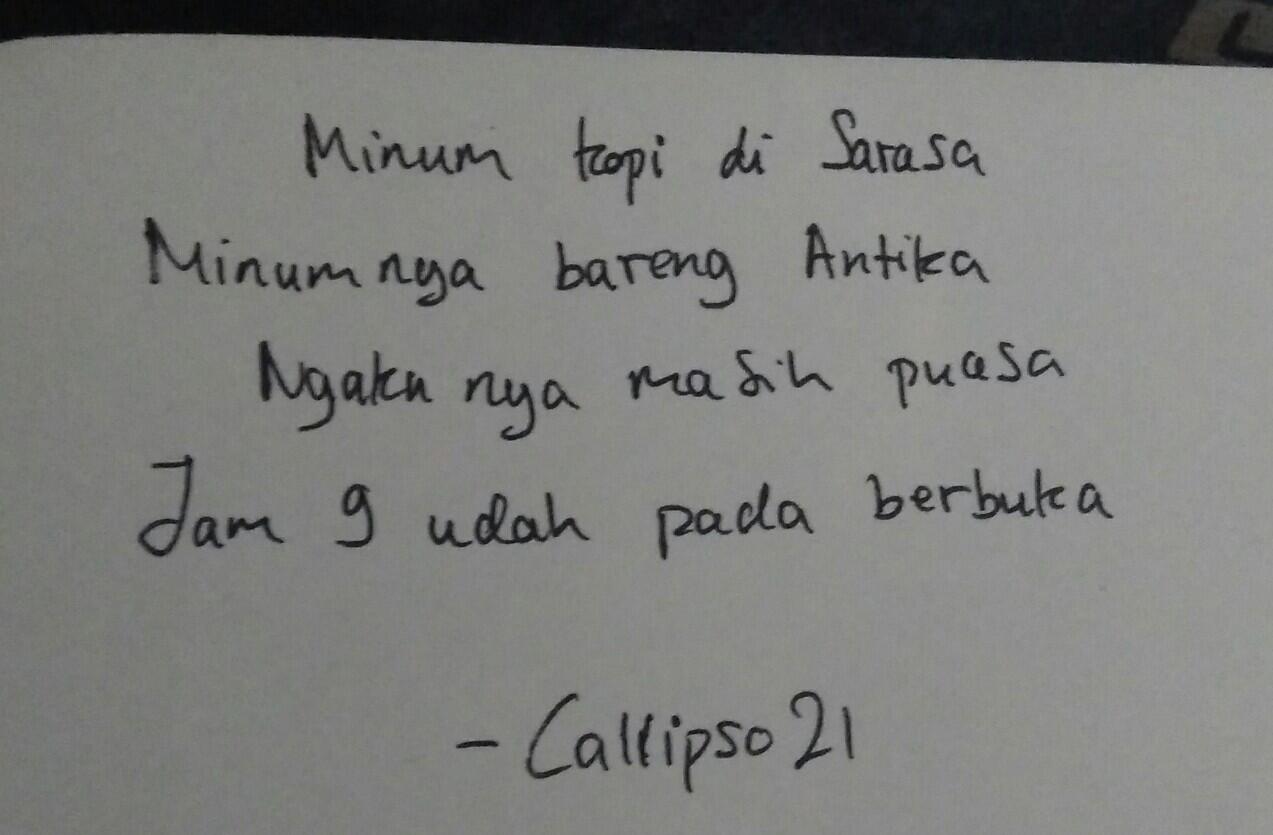 Minum kopi di Sarasa
Minumnya bareng Antika
Ngakunya masih puasa
Jam 9 udah pada berbuka
- Callipso 21